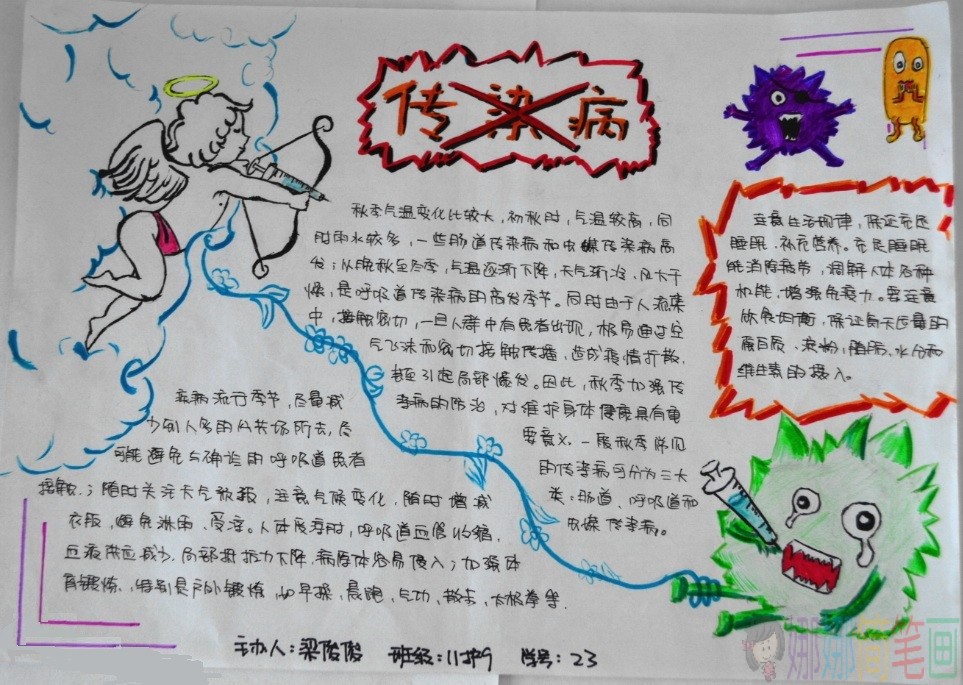 传染病
秋季气温变化比较大，初秋时，气温较高，同
时雨水较多，一些肠道传染病和虫媒传染病高
发；从晚秋至冬季，气温逐渐下降，天气渐冷，风大干
燥，是呼吸道传染病的高发季节。同时由于人流集
中，接触密切，一旦人群中有患者出现，极易通过空
气飞沫和密切接触传播，造成疫情扩散，
甚至引起局部爆发。因此，秋季加强传
染病的防治，对维护身体健康具有重
要意义，一般秋季常见
的传染病可分为三大
类：肠道、呼吸道和
虫媒传染病。
注意生活规律，保证充足
睡眠，补充营养。充足睡眠
能消除疲劳，调解人体各种
机能，增强免疫力。要注意
饮食均衡，保证每天适量的
蛋白质、淀粉，脂肪，水分和
维生素的摄入。
疾病流行季节，尽量减
少到人多的公共场所去，尽
可能避免与确诊的呼吸道患者
接触；随时关注天气预报，注意气候变化，随时增减
衣服，避免淋雨、受凉。人体受凉时，呼吸道血管收缩，
血液供应减少，局部抵抗力下降，病原体容易侵入；加强体
育锻炼，特别是户外锻炼，如早操，晨跑，气功，散步，太极拳等．
主办人：梁俊俊 班级：11护9 学号：23
娜娜简笔画